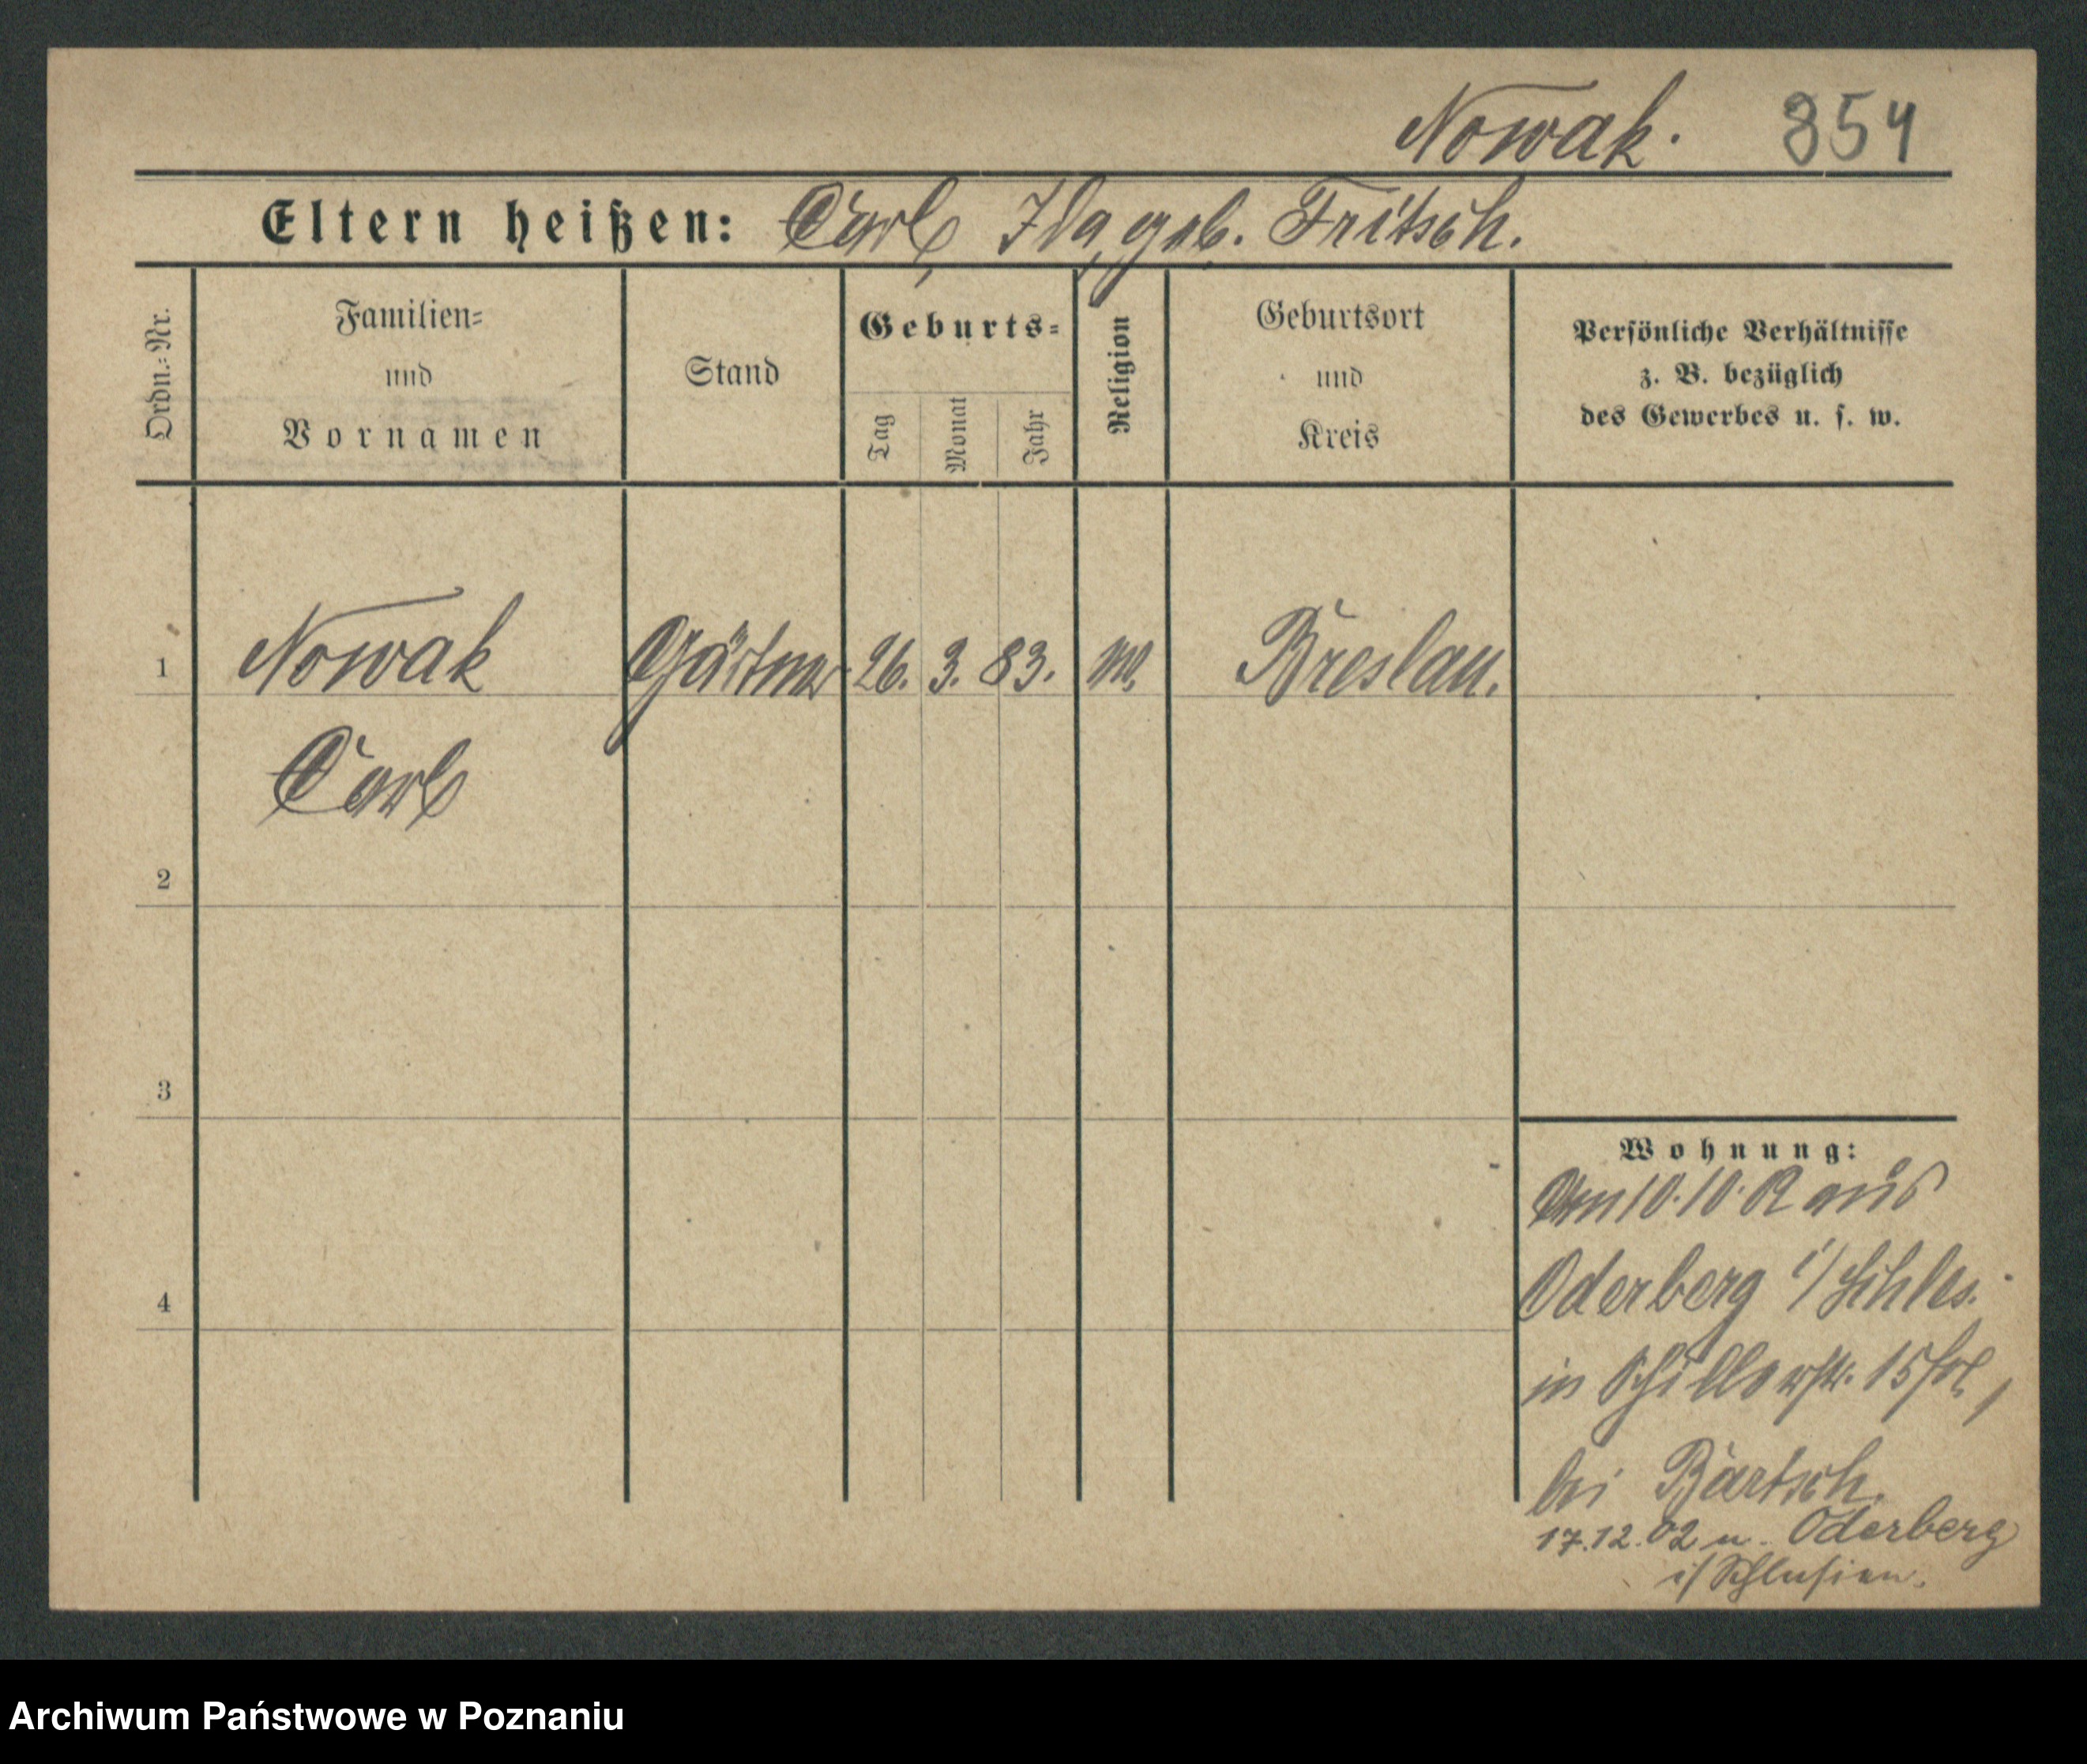 Nowak. 854
Eltern heißen: Carl, Ida, geb. Fritsch.
Ordn.=Nr.
Familien=
und
Vornamen
Stand
Geburts=
Tag
Monat
Jahr
Religion
Geburtsort
und
Kreis
Persönliche Verhältnisse
z. B. bezüglich
des Gewerbes u. s. w.
1 Nowak Gärtner 26. 3. 83. Breslau.
Carl
2
3
4
Wohnung:
Am 10.10.02 aus
Oderberg i/Schles.
in Schillerstr. 15
bei Bartsch.
17.12.02 n. Oderberg
i/Schlesien.
Archiwum Państwowe w Poznaniu